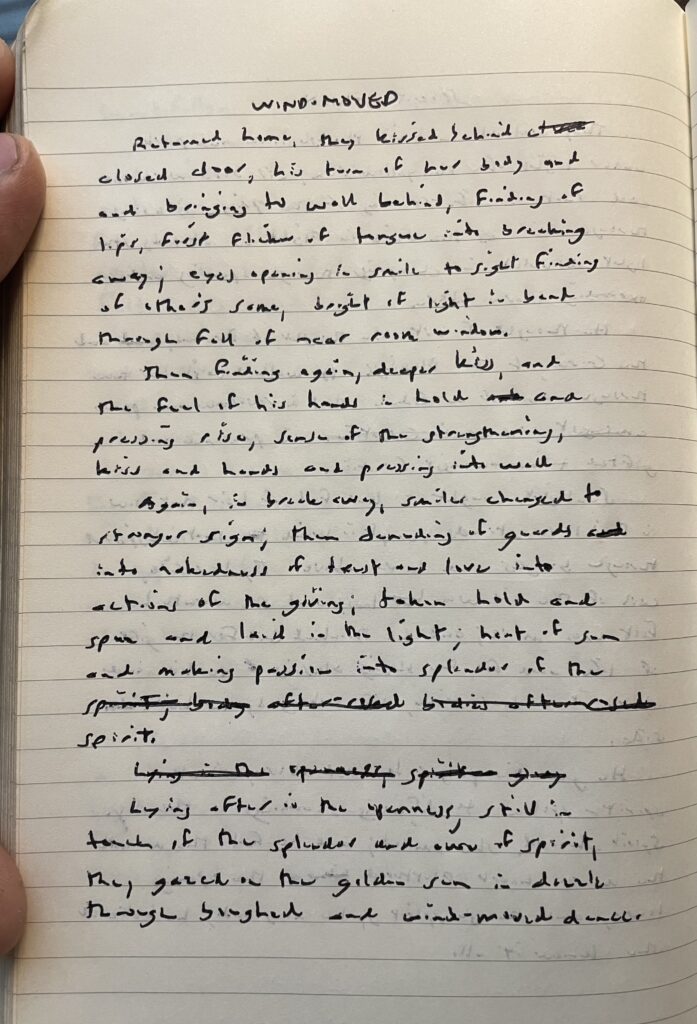 WIND-MOVED
Returned home, they kissed behind
closed door, his turn of her body and
and bringing to wall behind, finding of
lips, first flicker of tongue into breaking
away; eyes opening in smile to sight finding
of other's same, bright of light in bend
through fall of near room window.
Then finding again, deeper kiss, and
the feel of his hands in hold and
pressing rise, sense of the strengthening,
kiss and hands and pressing into wall
Again, in break away, smiles changed to
stronger sign; then denuding of guards
into nakedness of trust and love into
actions of the giving; taken hold and
spun and laid in the light; heat of sun
and making passion into splendor of the
spirit; body after bodies after
spirit.
Lying in the openness, spirit
Lying after in the openness, still in
touch of the splendor and of spirit,
they gazed on the golden sun in dazzle
through boughed and wind-moved dance.